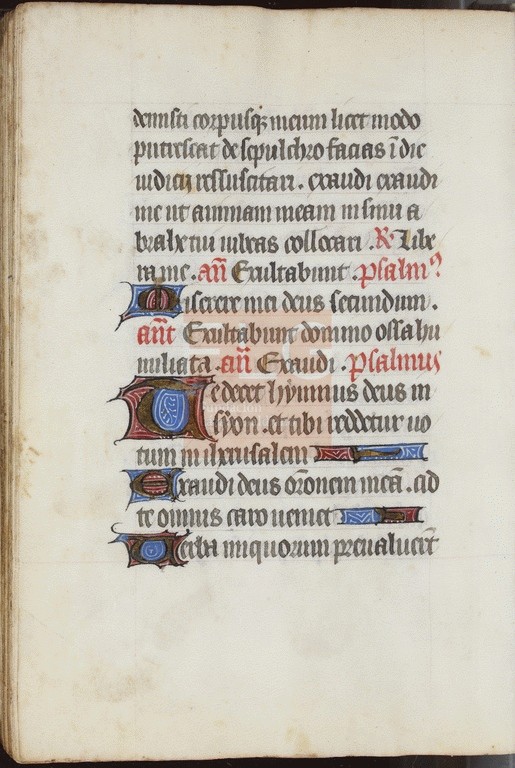 demisti corpusq; meum licet modo
putrescat de sepulchro facias ī die
iudicij ressuscitari. exaudi exaudi
me ut animam meam in sinu a
brahe tui iubeas collocari. R Libe
ra me. añ Exultabunt. psalm9
Miserere mei deus secundum.
añt Exultabunt domino ossa hu
miliata. añ Exaudi. psalmus
Te decet hymnus deus in
syon. et tibi reddetur uo
tum in iherusalem
Exaudi deus orōnem meā. ad
te omnis caro veniet
Verba iniquorum preualuerūt